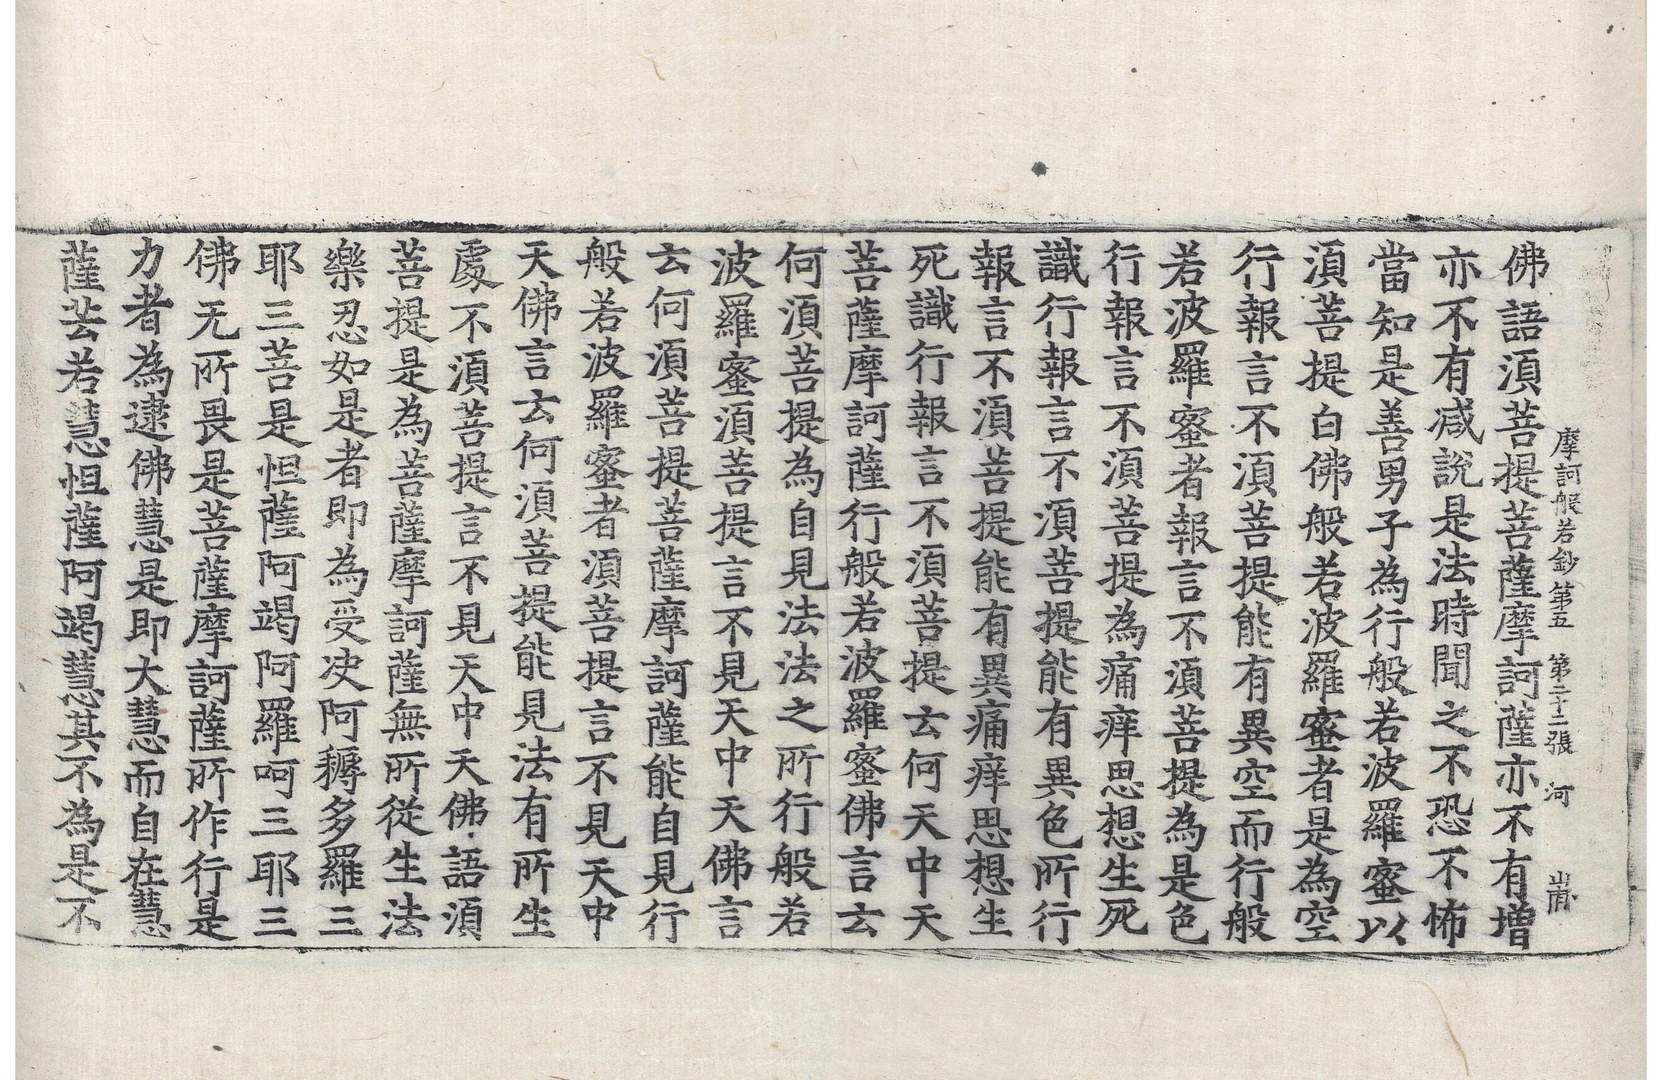 摩訶般若鈔第五 第二十二張 河
佛語湏菩提菩薩摩訶薩亦不有增
亦不有减說是法時聞之不恐不怖
當知是善男子為行般若波羅蜜以
湏菩提白佛般若波羅蜜者是為空
行報言不湏菩提能有異空而行般
若波羅蜜者報言不湏菩提為是色
行報言不湏菩提為痛痒思想生死
識行報言不湏菩提能有異色所行
報言不湏菩提能有異痛痒思想生
死識行報言不湏菩提云何天中天
菩薩摩訶薩行般若波羅蜜佛言云
何湏菩提為自見法法之所行般若
波羅蜜湏菩提言不見天中天佛言
云何湏菩提菩薩摩訶薩能自見行
般若波羅蜜者湏菩提言不見天中
天佛言云何湏菩提能見法有所生
處不湏菩提言不見天中天佛語湏
菩提是為菩薩摩訶薩無所從生法
樂忍如是者即為受决阿耨多羅三
耶三菩是怛薩阿竭阿羅呵三耶三
佛无所畏是菩薩摩訶薩所作行是
力者為逮佛慧是即大慧而自在慧
薩芸若慧怛薩阿竭慧其不為是不